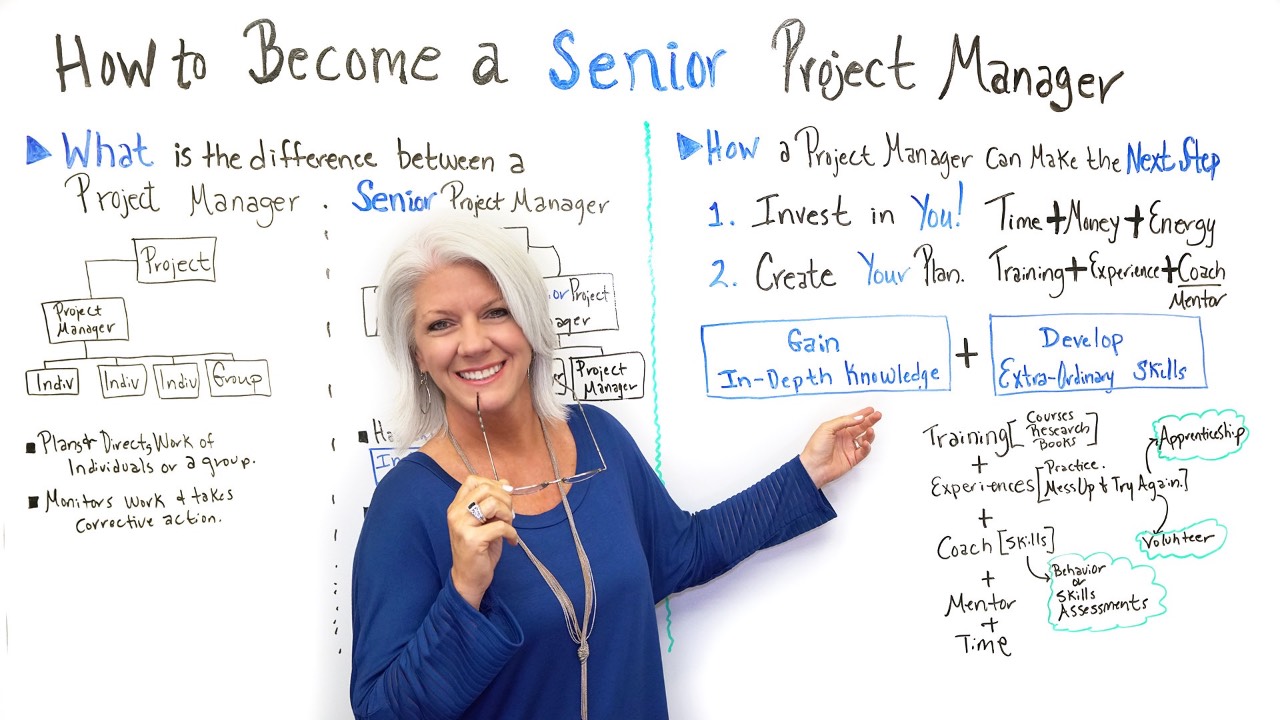 How to Become a Senior Project Manager
What is the difference between a
Project Manager . Senior Project Manager
Project
Project
Manager
Indiv Indiv Indiv Group
Plans & Directs Work of
Individuals or a group.
Monitors work & takes
corrective action.
Project
Project
Manager
How a Project Manager Can Make the Next Step
1. Invest in You! Time + Money + Energy
2. Create Your Plan. Training + Experience + Coach
Mentor
Gain
In-Depth Knowledge
+
Develop
Extra-Ordinary Skills
Training [Courses
Research
Books]
+
Experiences [Practice.
Mess Up & Try Again.]
Apprenticeship
Volunteer
+
Coach [Skills]
Behavior
or
Skills
Assessments
+
Mentor
+
Time